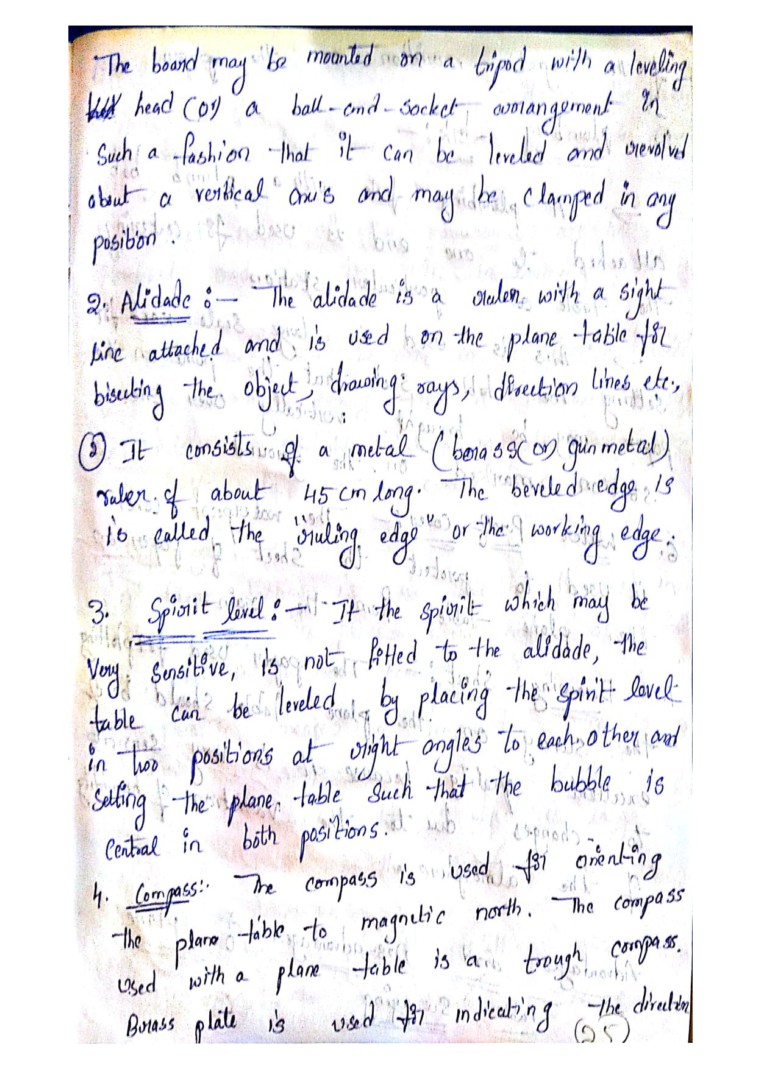 The board may be mounted on a tripod with a leveling
head (or) a ball-and-socket arrangement in
Such a fashion that it can be leveled and revolved
about a vertical axis and may be clamped in any
position.
2. Alidade :- The alidade is a ruler with a sight
line attached and is used on the plane table for
bisecting the object, drawing rays, direction lines etc.,
② It consists of a metal (brass (or) gunmetal)
ruler of about 45 cm long. The beveled edge is
is called the "ruling edge" or the working edge.
3. Spirit level :- It the spirit which may be
Very sensitive, is not fitted to the alidade, the
table can be leveled by placing the spirit level
in two positions at right angles to each other and
setting the plane table such that the bubble is
Central in both positions.
4. Compass :- The compass is used for orienting
the plane table to magnetic north. The compass
used with a plane table is a trough compass.
Brass plate is used for indicating the direction
(25)